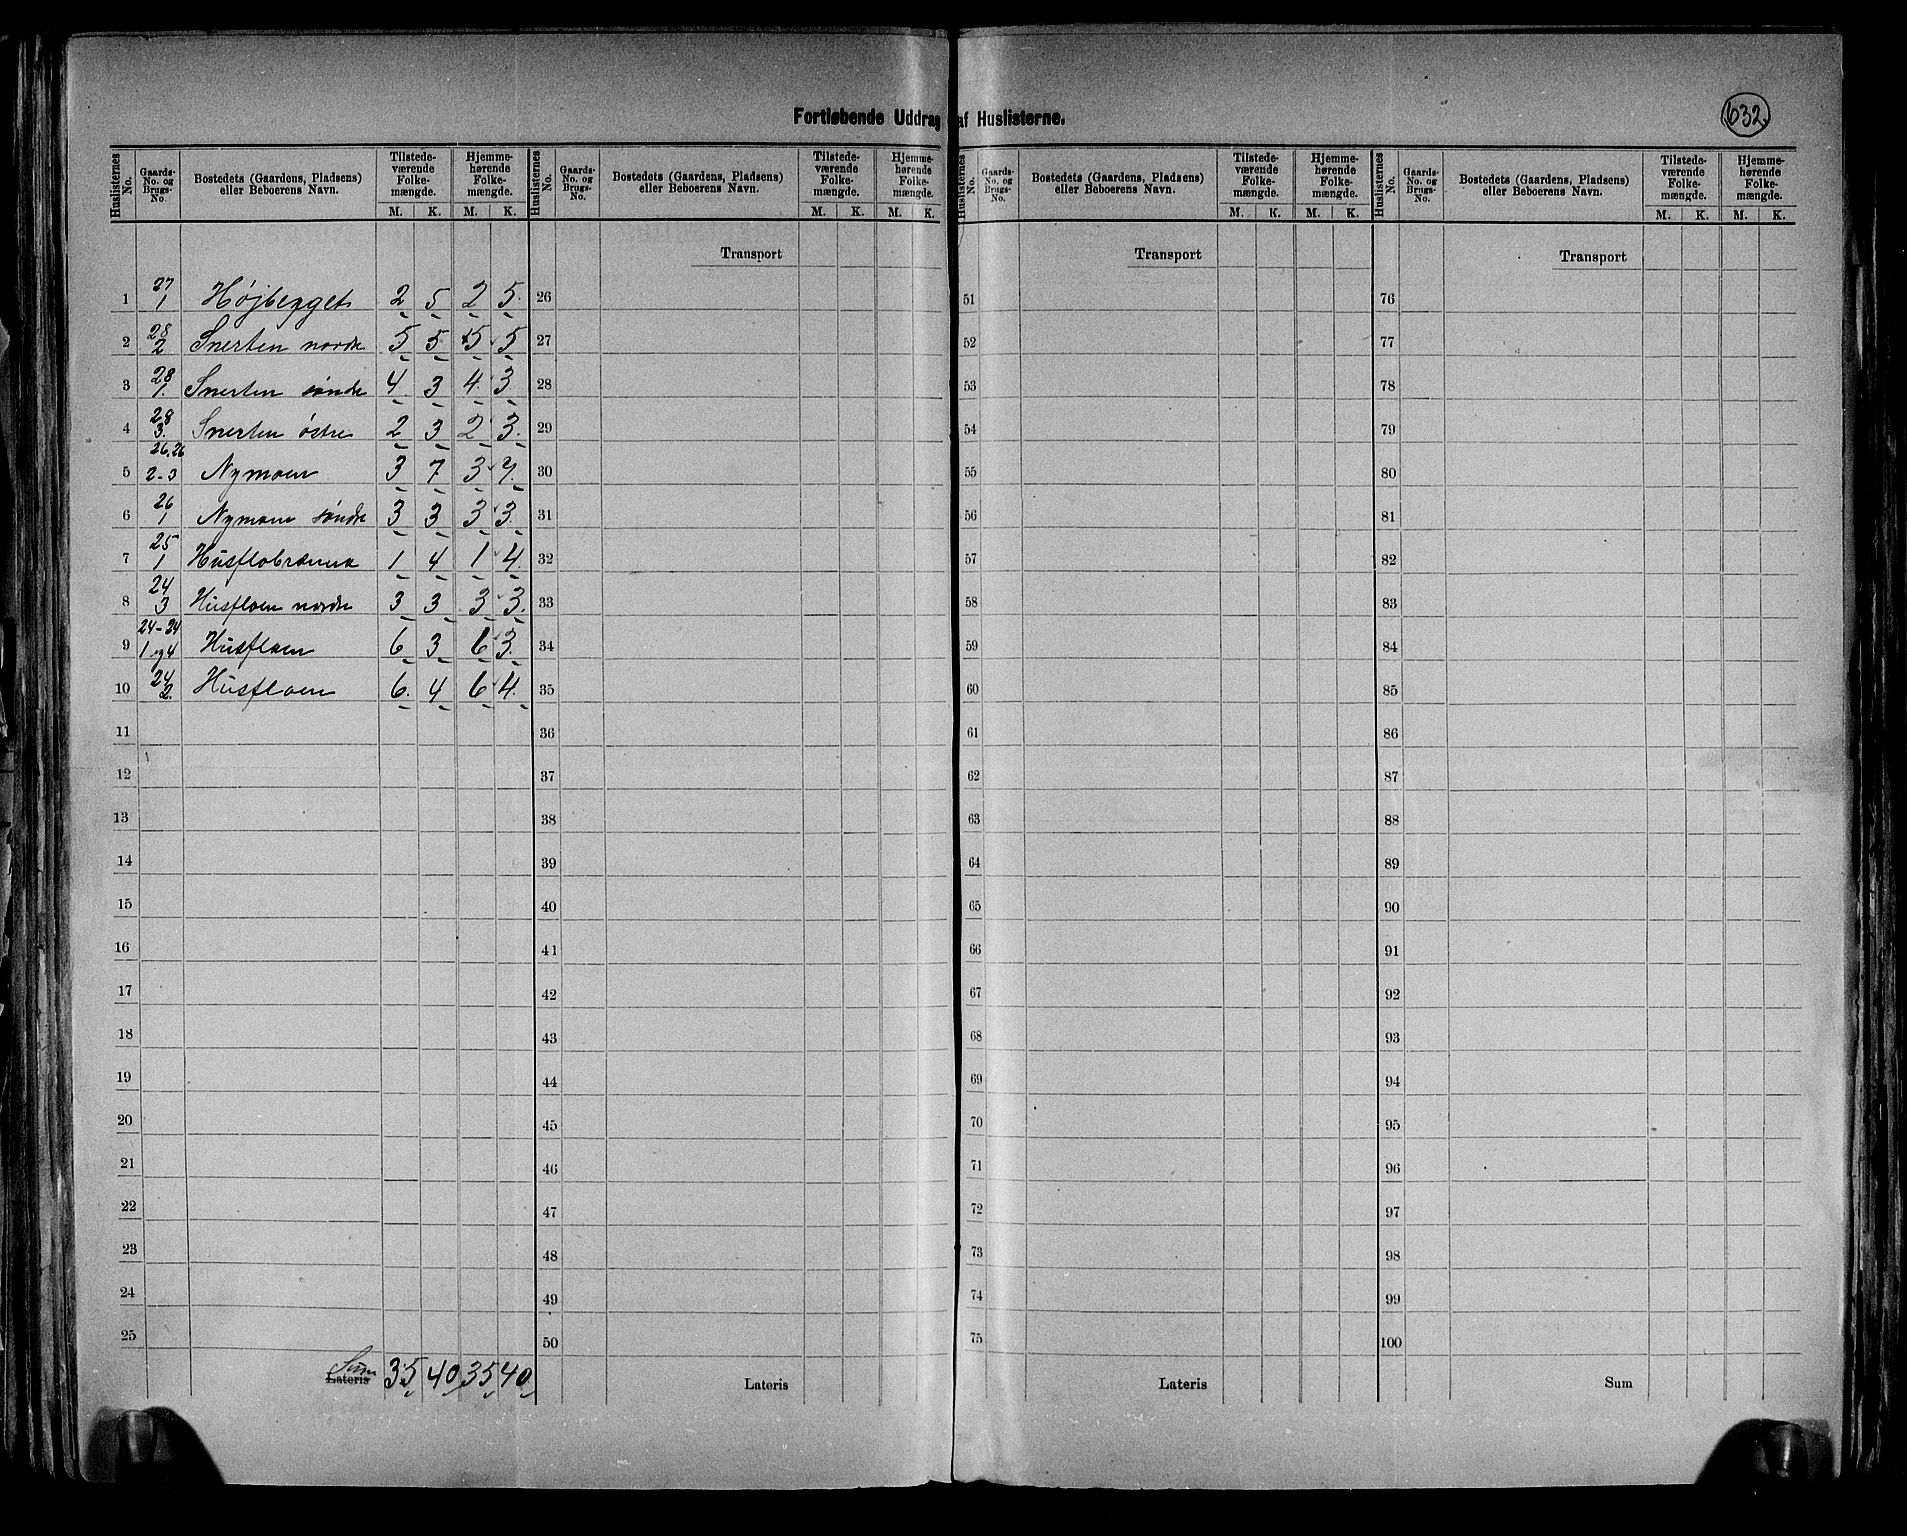 Fortløbende Uddrag af Huslisterne.
632.
Huslisternes No. Gaards-No. og Brugs-No. Bostedets (Gaardens, Pladsens) eller Beboerens Navn. Tilstedeværende Folkemængde. M. K. Hjemmehørende Folkemængde. M. K.
Huslisternes No. Gaards-No. og Brugs-No. Bostedets (Gaardens, Pladsens) eller Beboerens Navn. Tilstedeværende Folkemængde. M. K. Hjemmehørende Folkemængde. M. K.
Huslisternes No. Gaards-No. og Brugs-No. Bostedets (Gaardens, Pladsens) eller Beboerens Navn. Tilstedeværende Folkemængde. M. K. Hjemmehørende Folkemængde. M. K.
Huslisternes No. Gaards-No. og Brugs-No. Bostedets (Gaardens, Pladsens) eller Beboerens Navn. Tilstedeværende Folkemængde. M. K. Hjemmehørende Folkemængde. M. K.
Transport Transport Transport
1 27 1 Højberget 2 5 2 5. 26 51 76
2 28 2 Snerten nordre 5 5 5 5 27 52 77
3 28 1. Snerten søndre 4 3 4. 3 28 53 78
4 28 3. Snerten østre 2 3 2 3. 29 54 79
5 26.26 2-3 Nymoen 3 7 3 7. 30 55 80
6 26 1 Nymoen søndre 3 3 3 3. 31 56 81
7 25 1 Husflobrænna 1 4 1 4. 32 57 82
8 24 3 Husfloen nordre 3 3 3 3. 33 58 83
9 24-24 1 og 4 Husfloen 6 3 6 3. 34 59 84
10 24 2. Husfloen 6. 4 6 4. 35 60 85
11 36 61 86
12 37 62 87
13 38 63 88
14 39 64 89
15 40 65 90
16 41 66 91
17 42 67 92
18 43 68 93
19 44 69 94
20 45 70 95
21 46 71 96
22 47 72 97
23 48 73 98
24 49 74 99
25 50 75 100
Sum Lateris 35 40 35 40 Lateris Lateris Sum